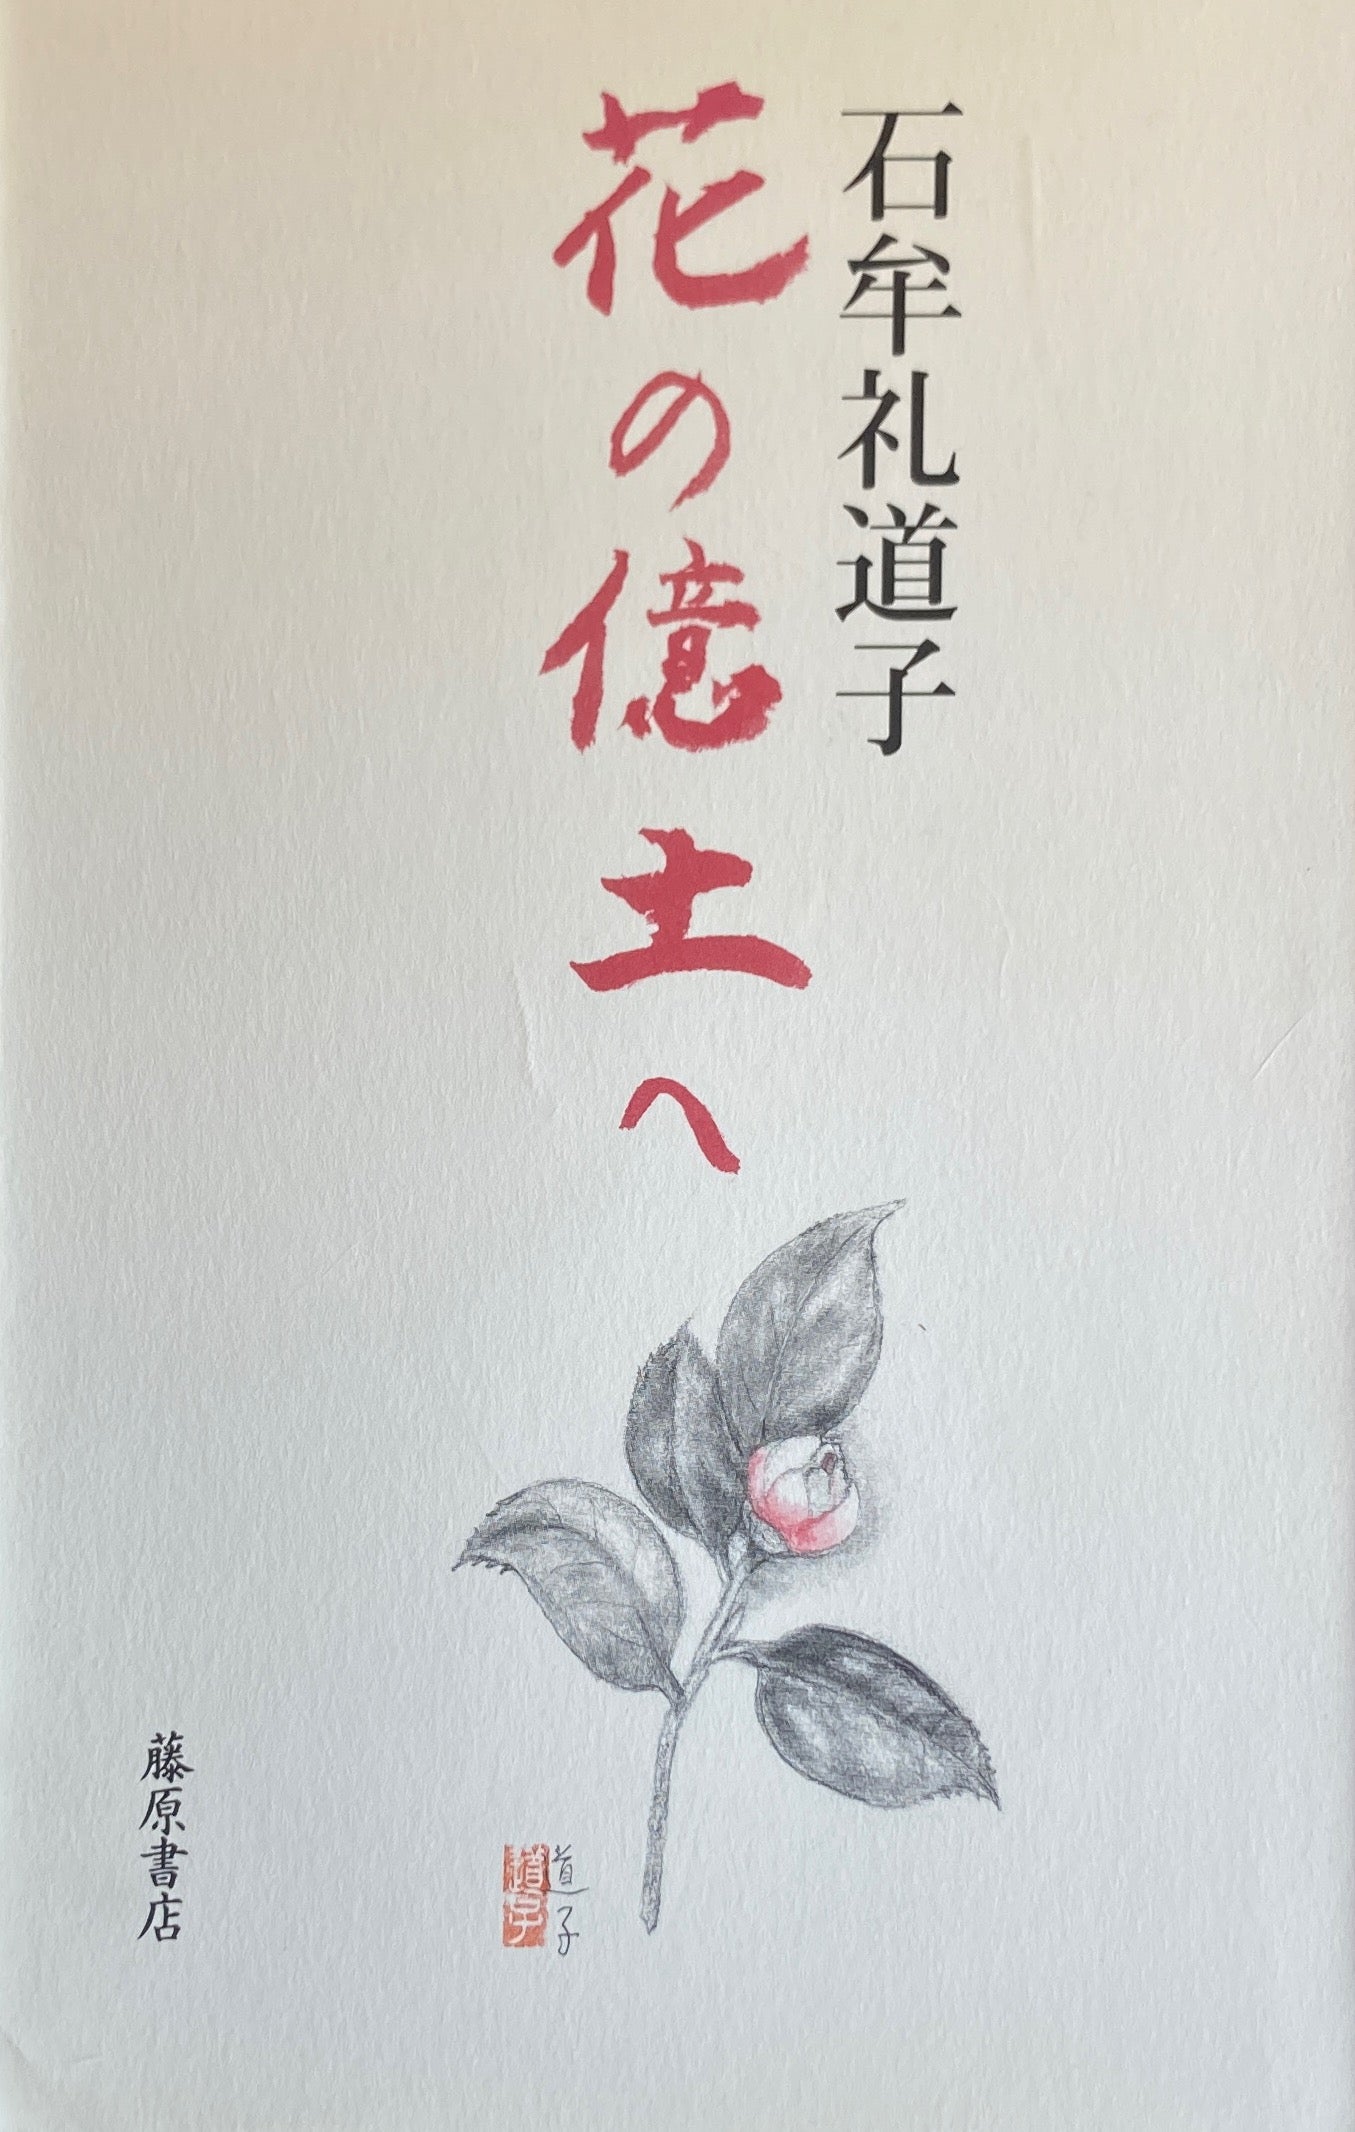 石牟礼道子
花の億土へ
道子
道子
藤原書店